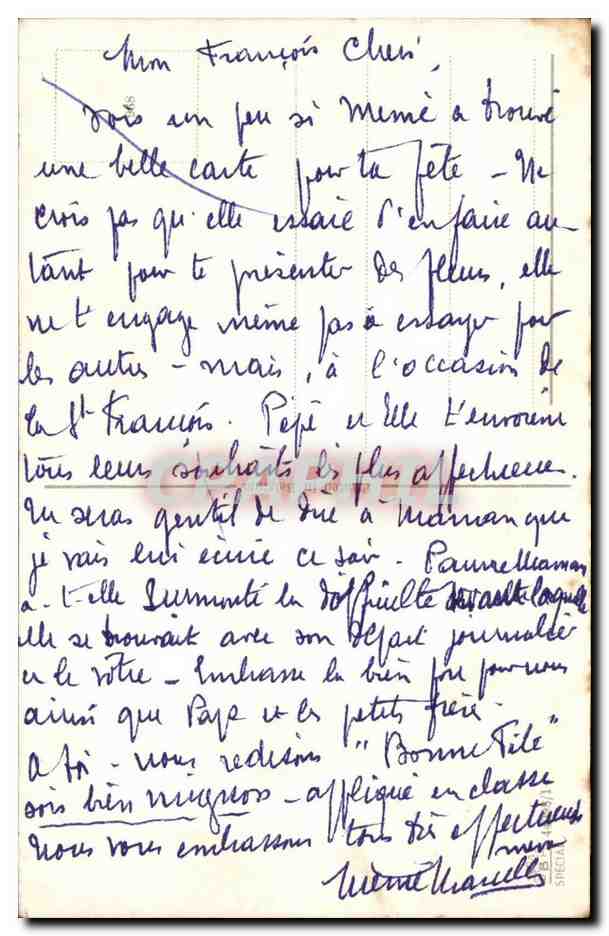 Mon François Cheri,
Vois un peu si Mémé a trouvé
une belle carte pour ta fête – Ne
crois pas qu'elle essaie d'en faire au-
tant pour te présenter des fleurs, elle
ne t'engage même pas à essayer pour
les autres – mais, à l'occasion de
la St François. Pépé et Elle t'envoient
tous leurs souhaits les plus affectueux.
Tu seras gentil de dire à Maman que
je vais lui écrire ce soir. Pauvre Maman
a-t-elle surmonté la difficulté devant laquelle
elle se trouvait avec son départ journalier
et le vôtre – Embrasse la bien fort pour nous
ainsi que Papa et les petits frère.
A toi – nous redisons "Bonne Fête"
sois bien mignon – appliqué en classe
Nous vous embrassons tous très affectueuse
ment
Mémé Marcelle
CPARAMA
SPECIAL